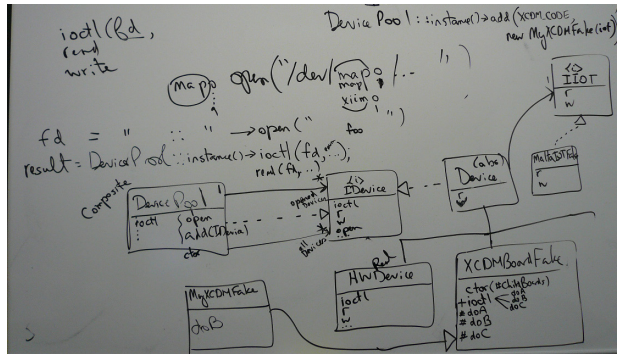 ioctl(fd,
read
write
DevicePool::instance()->add(XCDM_CODE,
new MyXCDMFake(iot)
open("/dev/map0, ... ")
map0
xiim 0
fd = " :: " -> open(" foo ")
result = DevicePool::instance()->ioctl(fd,...);
read(fd,...)
Composite
DevicePool
ioctl
open
add(IDevice)
ctor
opened Devices
all Devices
<i>
IDevice
ioctl
r
w
open
(abs)
Device
r
<i>
IIOT
r
w
MaltaIOTFake
r
w
Real
HWDevice
ioctl
r
w
...
XCDMBoardFake
ctor(#ChildBoards)
+ioctl
doA
doB
doC
#doA
#doB
#doC
MyXCDMFake
doB